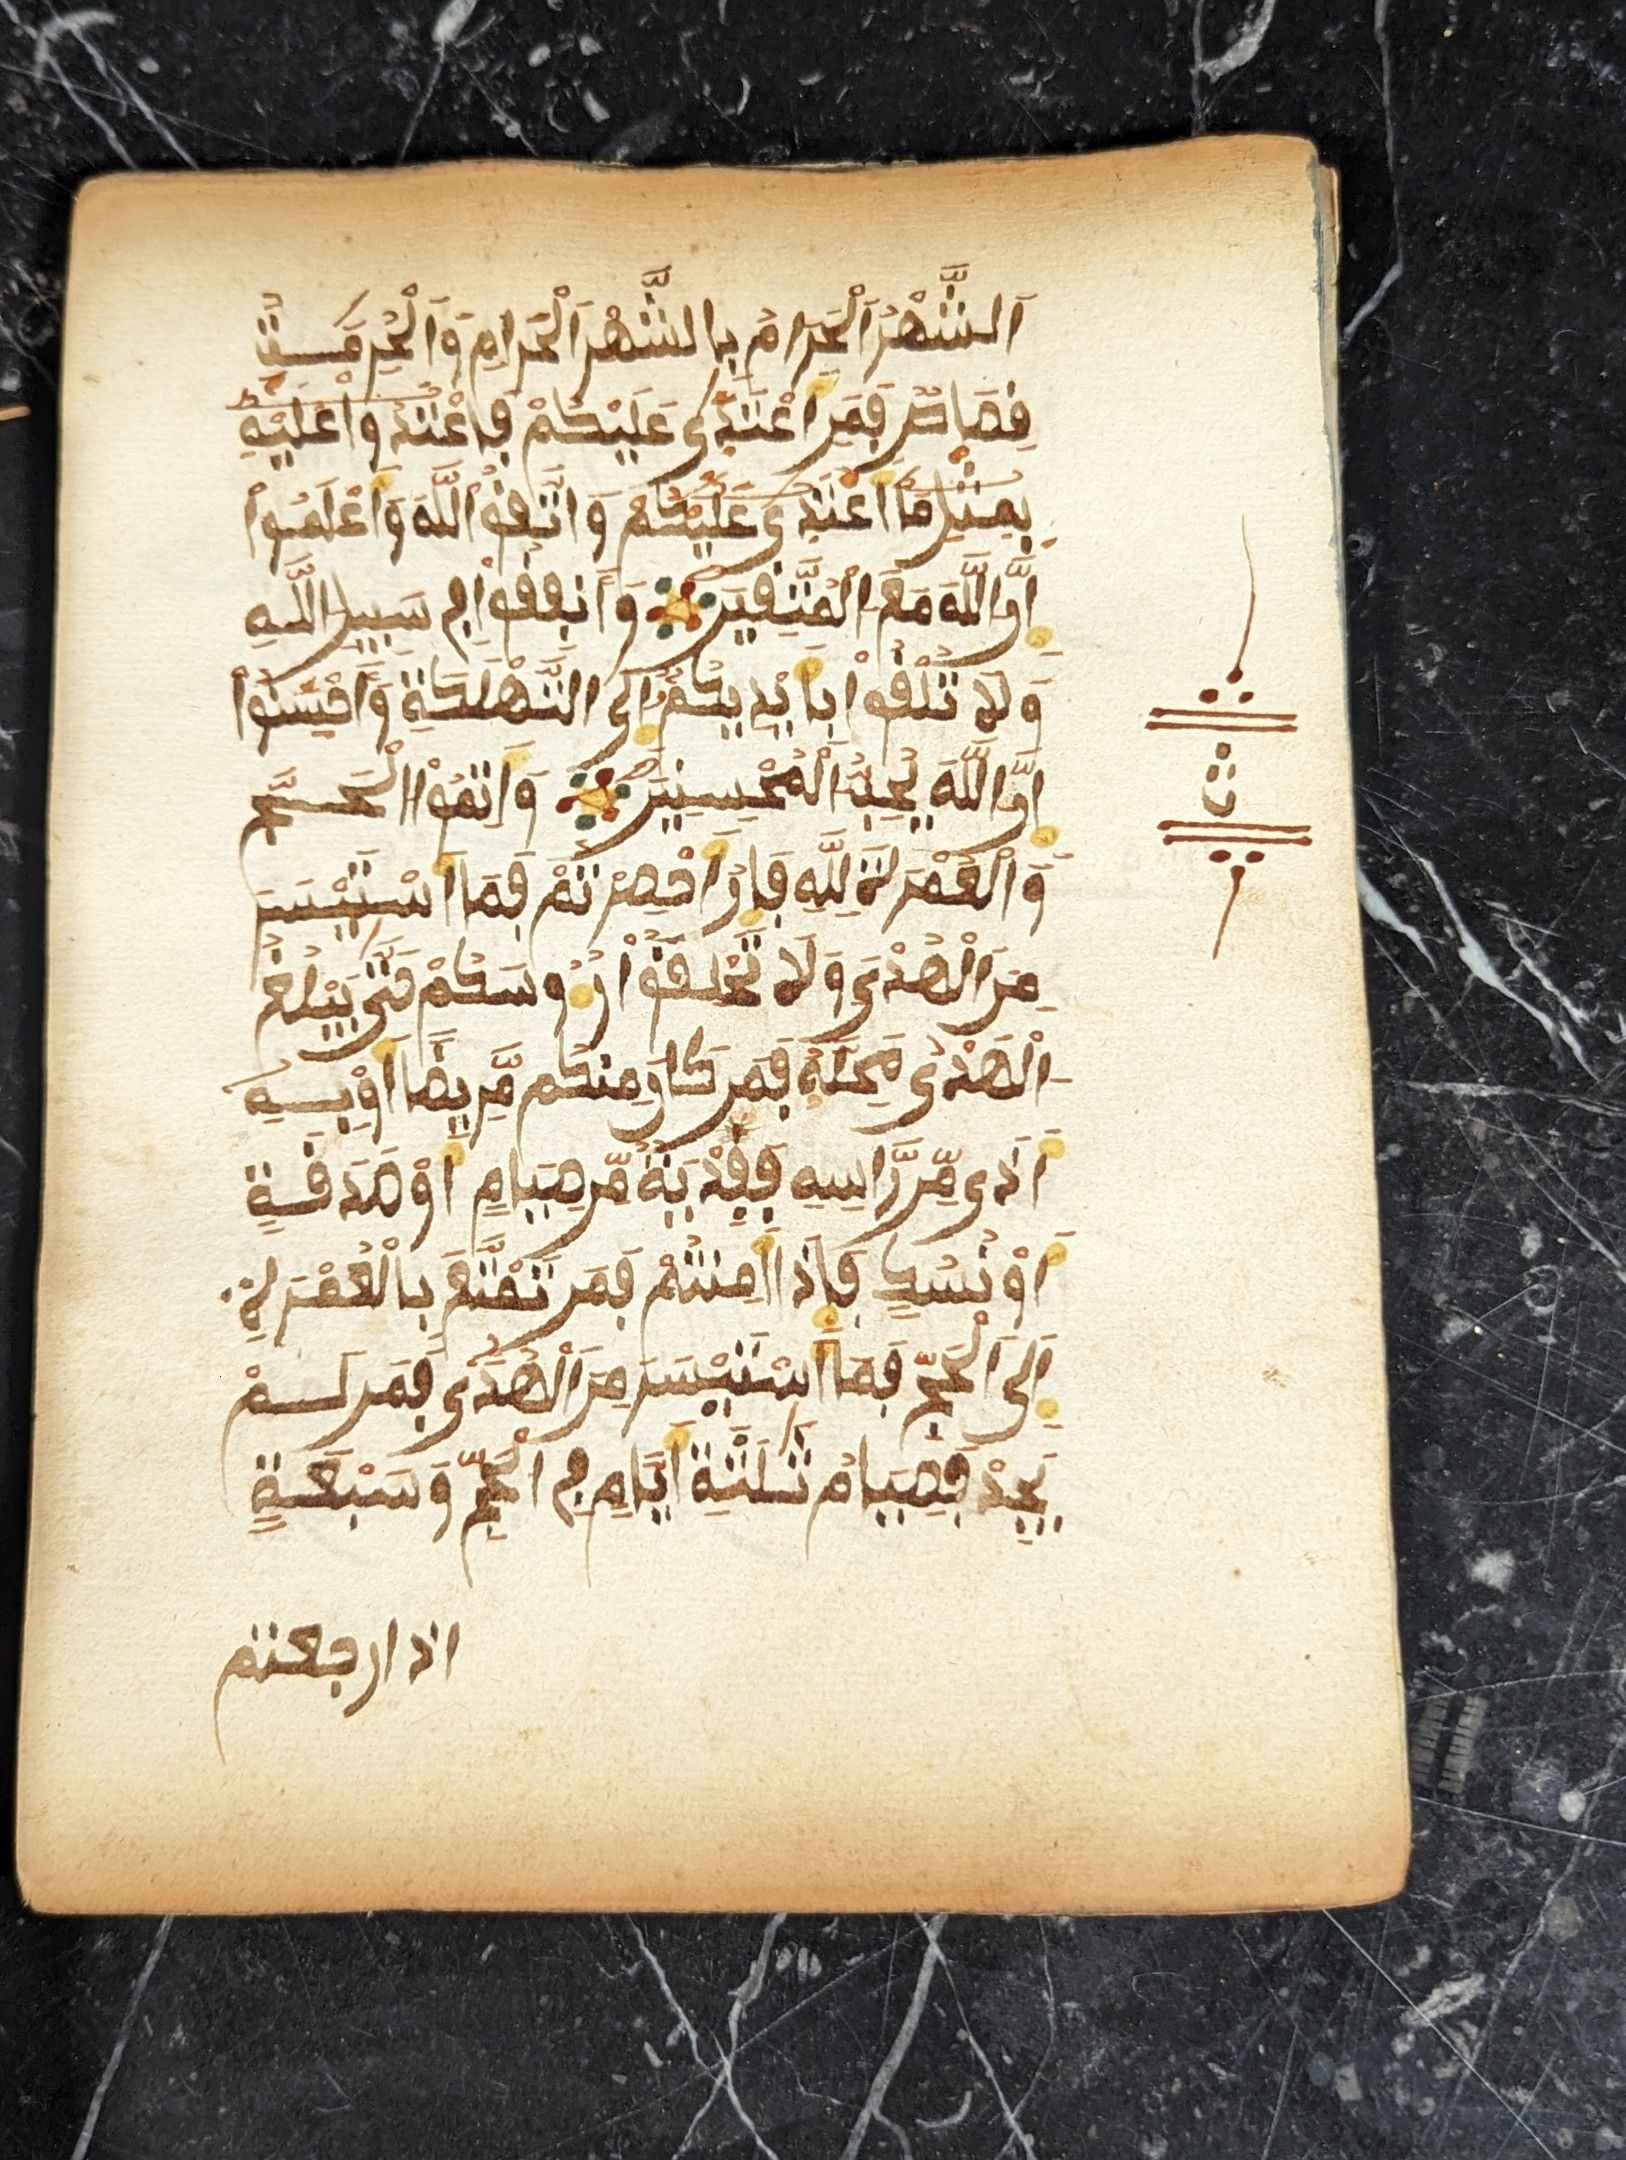 اَلشَّهْرُ اَلْحَرَامُ بِالشَّهْرِ اَلْحَرَامِ وَالْحُرُمَٰتُ
قِصَاصٌ فَمَنِ اعْتَدَىٰ عَلَيْكُمْ فَاعْتَدُوا عَلَيْهِ
بِمِثْلِ مَا اَعْتَدَىٰ عَلَيْكُمْ وَاتَّقُوا اْللَّهَ وَاَعْلَمُواْ
أَنَّ اَللَّهَ مَعَ اَلْمُتَّقِينَ وَأَنفِقُواْ فِي سَبِيلِ اللَّهِ
وَلَا تُلْقُواْ بِأَيْدِيكُمْ إِلَى التَّهْلُكَةِ وَأَحْسِنُواْ
إِنَّ اَللَّهَ يُحِبُّ اَلْمُحْسِنِينَ وَأَتِمُّواْ الْحَجَّ
وَالْعُمْرَةَ لِلَّهِ فَإِنْ أُحْصِرْتُمْ فَمَا اَسْتَيْسَرَ
مِنَ اَلْهَدْيِ وَلَا تَحْلِقُواْ رُءُوسَكُمْ حَتَّىٰ يَبْلُغَ
اَلْهَدْيُ مَحِلَّهُ فَمَن كَانَ مِنكُم مَّرِيضًا أَوْ بِهِ
أَذًى مِّن رَّأْسِهِ فَفِدْيَةٌ مِّن صِيَامٍ أَوْ صَدَقَةٍ
أَوْ نُسُكٍ فَإِذَا أَمِنتُمْ فَمَن تَمَتَّعَ بِالْعُمْرَةِ
إِلَى اَلْحَجِّ فَمَا اَسْتَيْسَرَ مِنَ اَلْهَدْيِ فَمَن لَّمْ
يَجِدْ فَصِيَامُ ثَلَٰثَةِ أَيَّامٍ فِي الْحَجِّ وَسَبْعَةٍ
اذا رجعتم